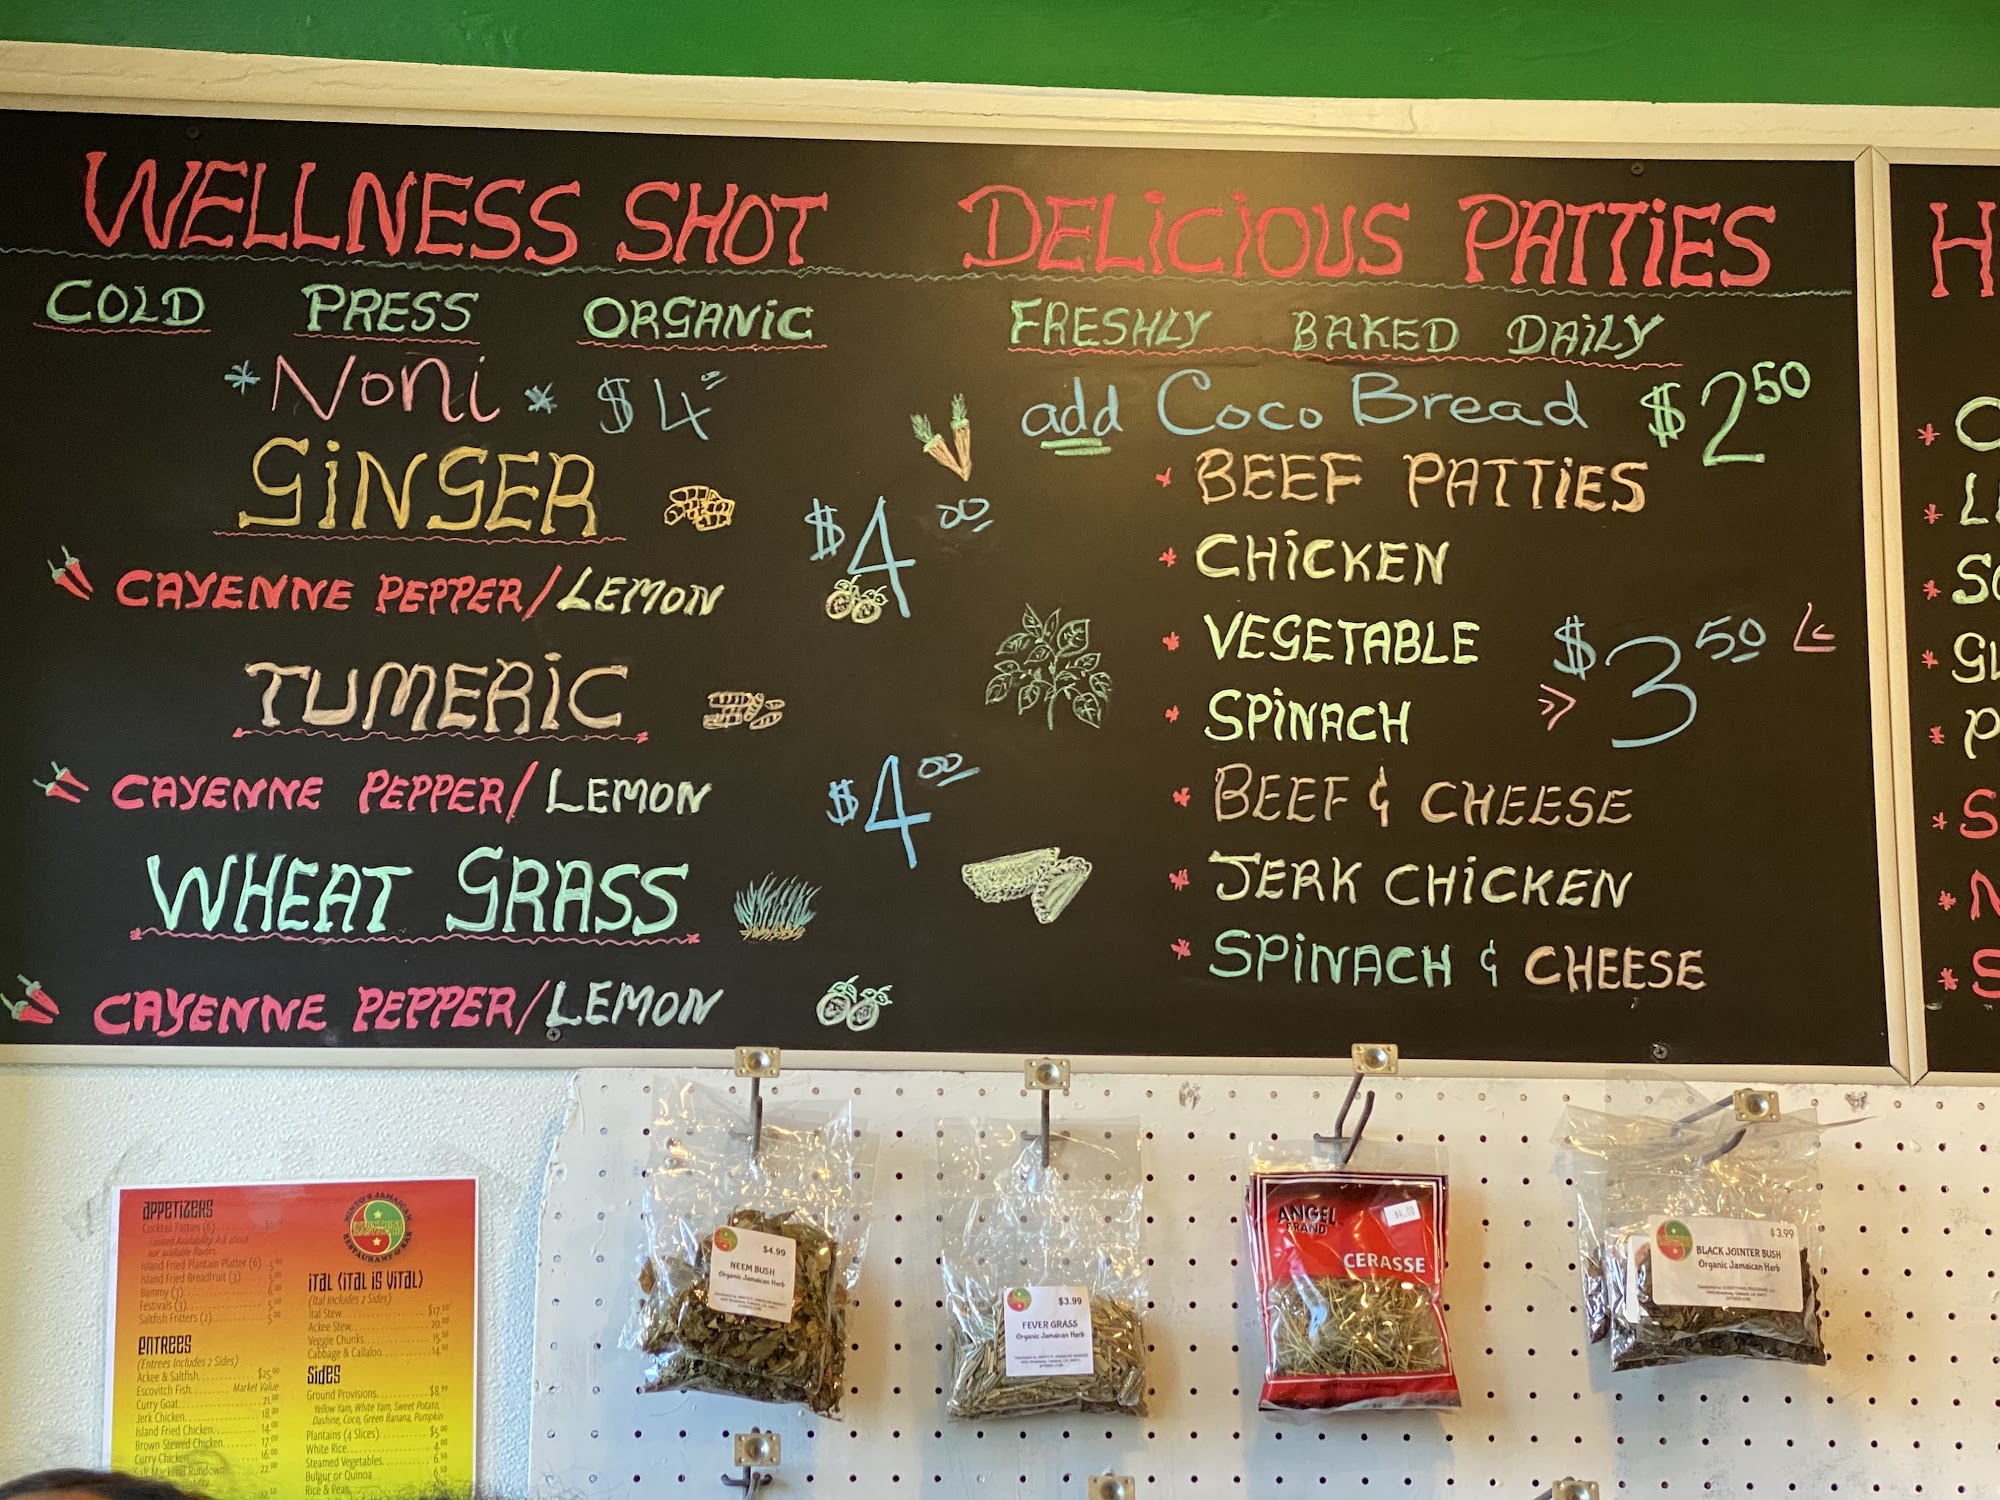 WELLNESS SHOT
COLD PRESS ORGANIC
*NONI* $4
GINGER
CAYENNE PEPPER/LEMON
$4 00
TUMERIC
CAYENNE PEPPER/LEMON
$4 00
WHEAT GRASS
CAYENNE PEPPER/LEMON
DELICIOUS PATTIES
FRESHLY BAKED DAILY
add Coco Bread $2 50
* BEEF PATTIES
* CHICKEN
* VEGETABLE
* SPINACH
$3 50
* BEEF & CHEESE
* JERK CHICKEN
* SPINACH & CHEESE
H
APPETIZERS
Cocktail Patties (6)
Limited Availability Ask about
our available flavors
Island Fried Plantain Platter (6)
Island Fried Breadfruit (3)
Bammy (3)
Festivals (3)
Saltfish Fritters (2)
ENTREES
(Entrees Includes 2 Sides)
Ackee & Saltfish $25.00
Escovitch Fish Market Value
Curry Goat 21.00
Jerk Chicken 18.00
Island Fried Chicken
Brown Stewed Chicken
Curry Chicken
Salt Mackerel Rundown
MINTO'S JAMAICAN
RESTAURANT & BAR
ITAL (ITAL IS VITAL)
(Ital Includes 2 Sides)
Ital Stew
Ackee Stew
Veggie Chunks
Cabbage & Callaloo
SIDES
Ground Provisions
Yellow Yam, White Yam, Sweet Potato,
Dashine, Coco, Green Banana, Pumpkin
Plantains (4 Slices)
White Rice
Steamed Vegetables
Bulgur or Quinoa
Rice & Peas
$4.99
NEEM BUSH
Organic Jamaican Herb
$3.99
FEVER GRASS
Organic Jamaican Herb
ANGEL
BRAND
CERASSE
$3.99
BLACK JOINTER BUSH
Organic Jamaican Herb